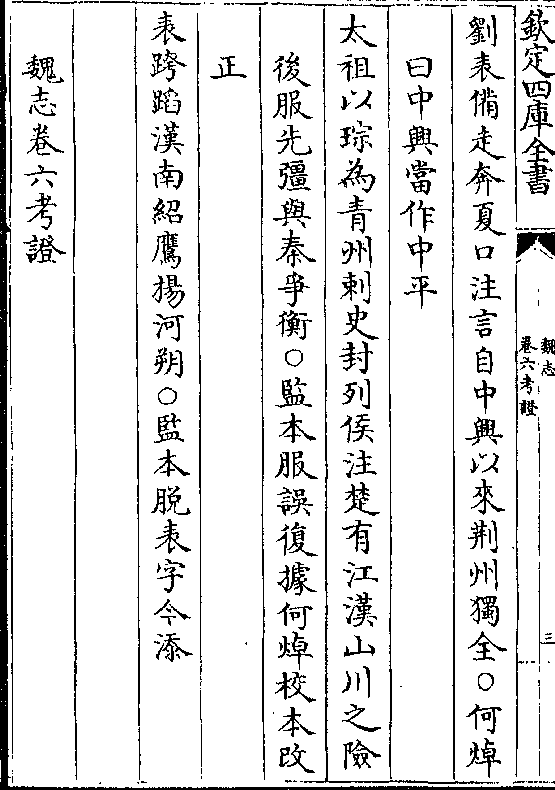 欽定四庫全書
魏志
卷六考證
三
劉表備走奔夏口注言自中興以來荆州獨全○何焯
曰中興當作中平
太祖以琮為青州刺史封列侯注楚有江漢山川之險
後服先彊與秦爭衡○監本服誤復據何焯校本改
正
表跨蹈漢南紹鷹揚河朔○監本脱表字今添
魏志卷六考證